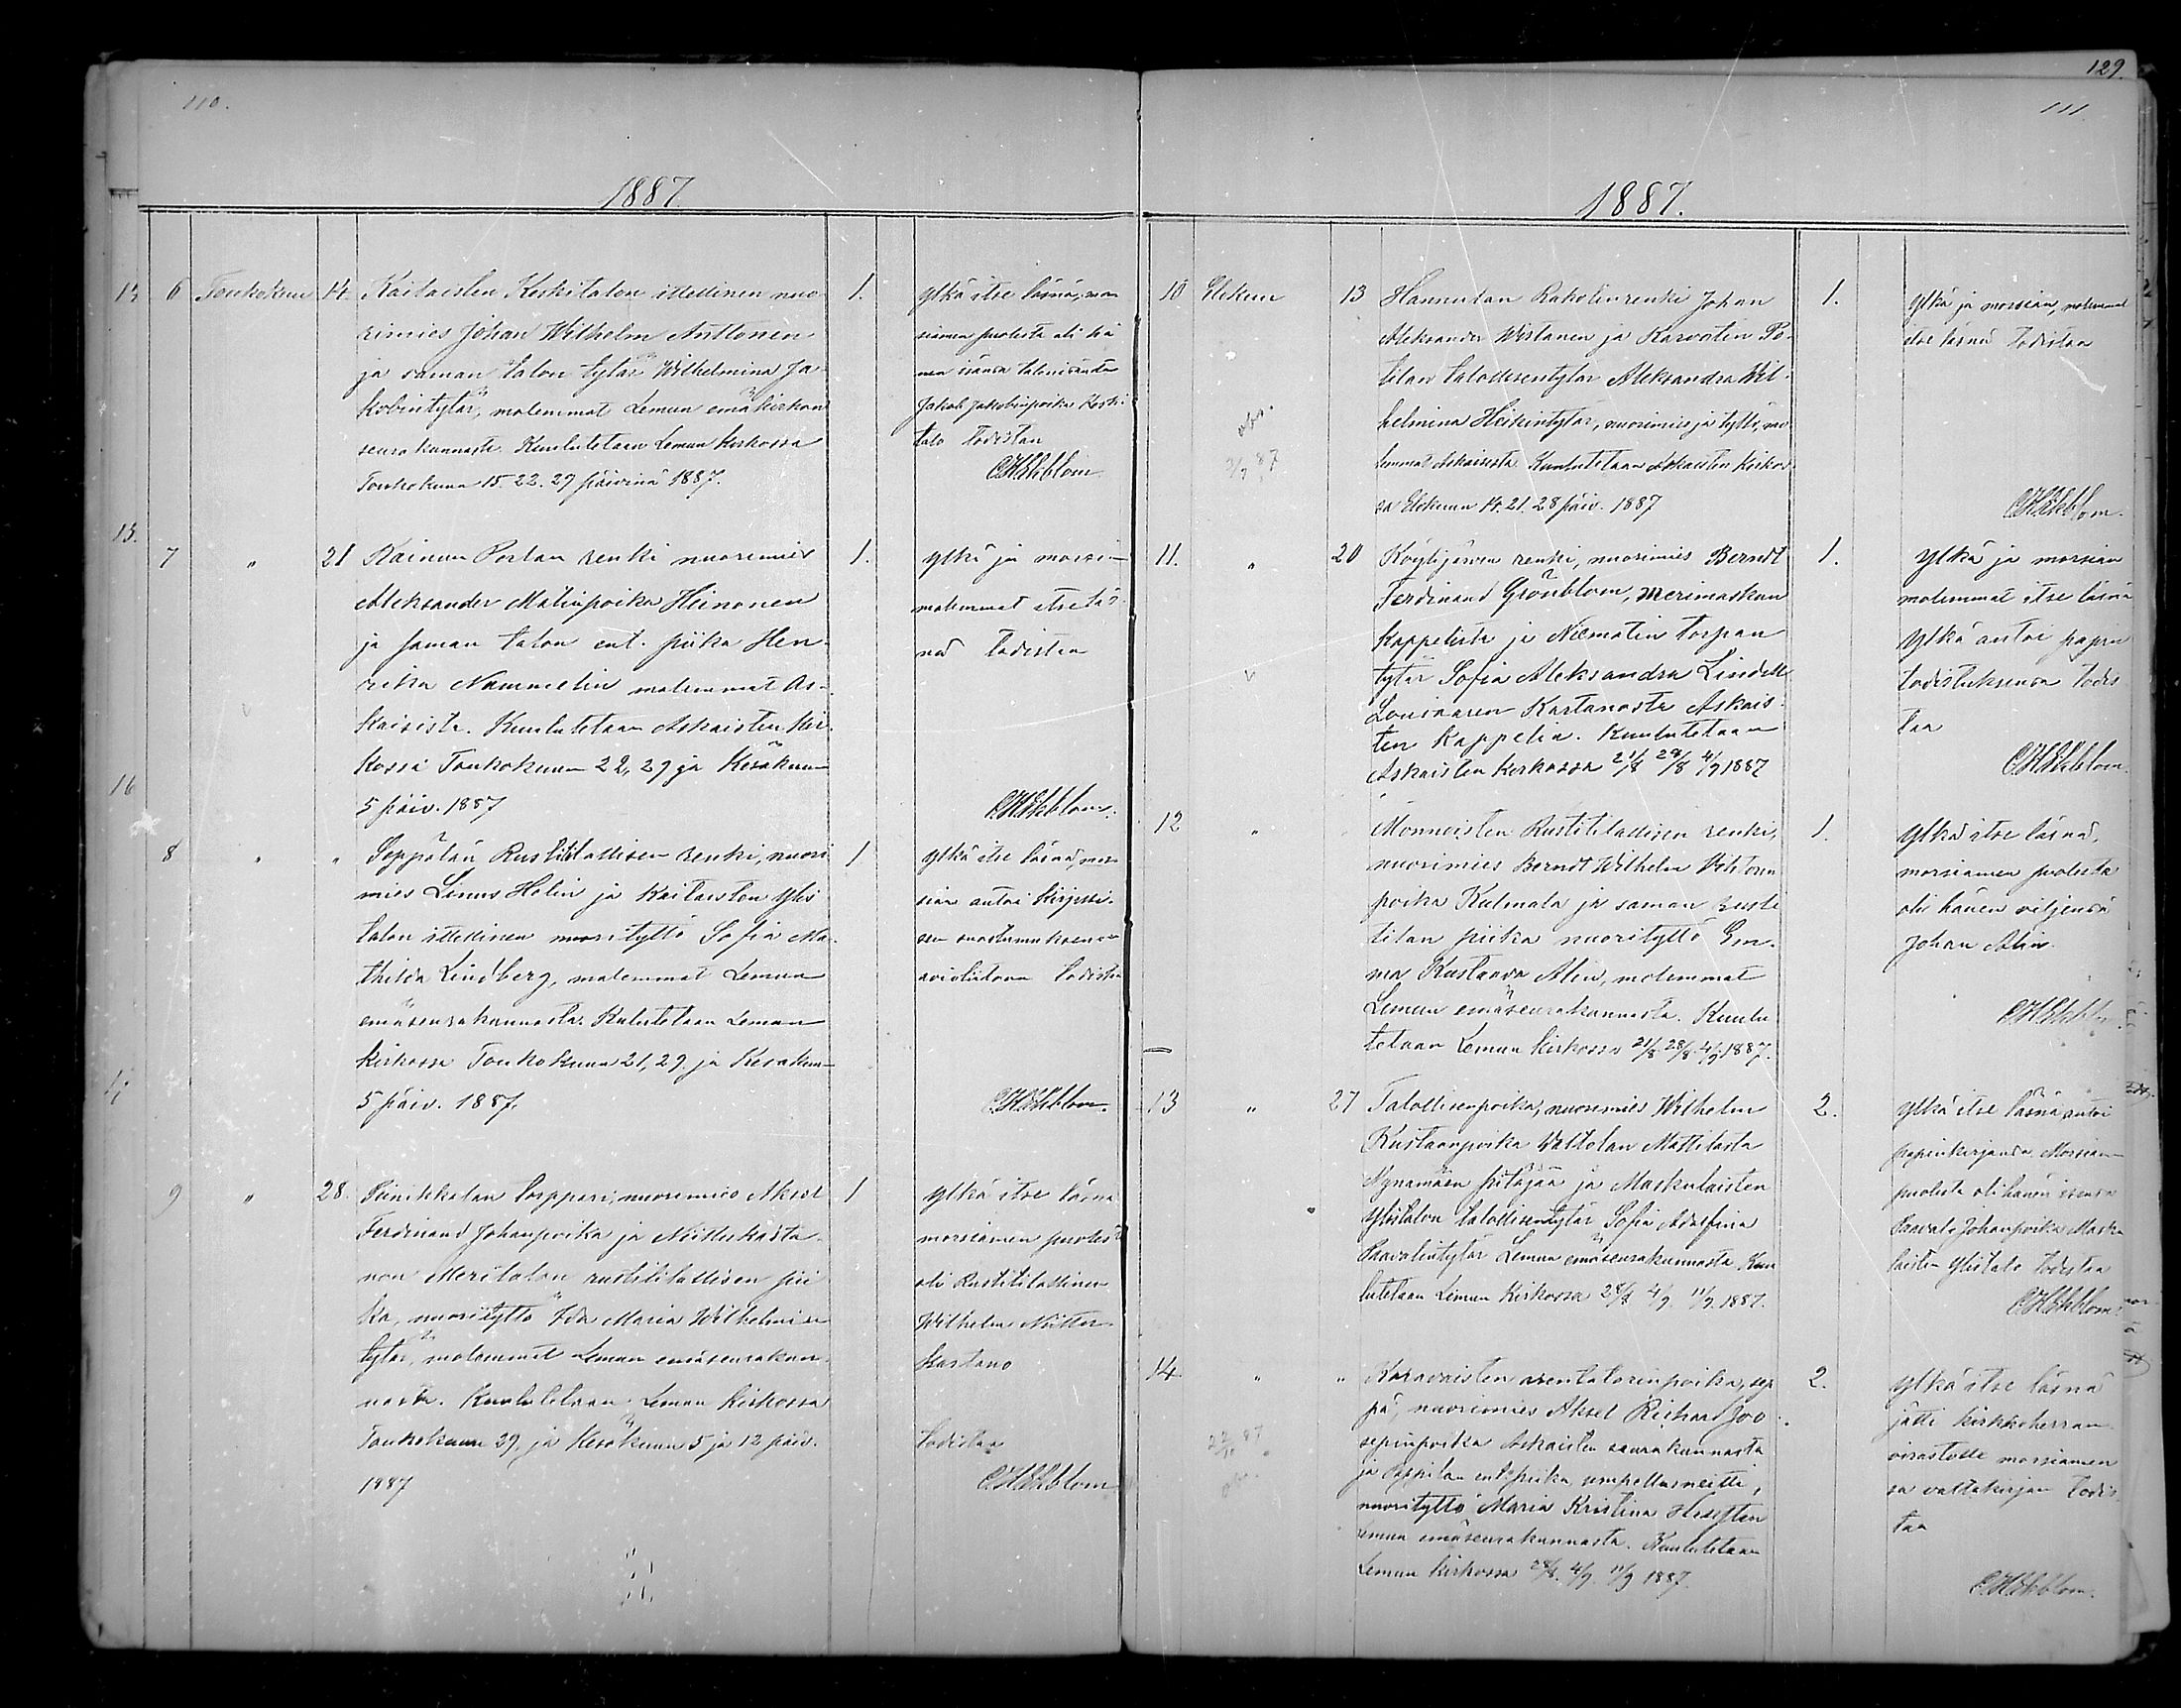 110.
1887.
6 Toukokuu 14. Kaitaisten Keskitalon itellinen nuo
rimies Johan Wilhelm Anttonen
ja saman talon tytär Wilhelmina Ja
kobintytär, molemmat Lemun emäkirkon
seurakunnasta. Kuulutetaan Lemun kirkossa
Toukokuun 15. 22. 29 päivinä 1887.
1.
Ylkä itse läsnä, mor
siamen puolesta oli hä
nen isänsä talonisäntä
Jakob Jakobinpoika Keski
talo Todistan
CHEkblom
7 " 21 Kainun Portan renki nuorimies
Aleksander Matinpoika Heinonen
ja saman talon ent. piika Hen-
rika Nummelin molemmat As-
kaisista. Kuulutetaan Askaisten kir-
kossa Toukokuun 22, 29 ja Kesäkuun
5 päiv. 1887
1.
Ylkä ja morsi-
molemmat itse läs-
nä todistaa
CHEkblom.
8 " " Seppälän Rustitilallisen renki, nuori
mies Linus Helin ja Kaitaisten Ylis
talon itellinen nuorityttö Sofia Ma-
thilda Lindberg, molemmat Lemun
emäseurakunnasta. Kulutetaan Lemun
kirkossa Toukokuun 21, 29. ja Kesäkuun
5 päiv. 1887.
1
Ylkä itse läsnä, mor
sian antoi kirjessi-
sen suostumuksensa
avioliitoon todistaa
CHEkblom.
9 " 28. Piinikkalan torppari, nuorimies Aksel
Ferdinand Johanpoika ja Nuitterkarta
non Meritalon rustitilallisen pii
ka, nuorityttö Ida Maria Wilhelmin
tytär, molemmat Lemun emäseurakun
nasta. Kuulutetaan Lemun kirkossa
Toukokuun 29, ja Kesäkuun 5 ja 12 päiv.
1887
1
Ylkä itse läsnä
morsiamen puolest
oli Rustitilallinen
Wilhelm
kartano
todistaa
CHEkblom
129.
111.
1887.
10 Elokuu 13 Hannulan Rakolinrenki Johan
Aleksander Wistanen ja Karvoisten Po-
tilan talollisentytär Aleksandra Wil-
helmina Heikintytär, nuorimies ja tyttö, mo
lemmat Askaisista. Kuulutetaan Askaisten Kirkos
sa Elokuun 14. 21. 28 päiv. 1887
1.
Ylkä ja morsian, molemmat
itse läsnä todistaa
CHEkblom.
11. " 20 Köylijärven renki, nuorimies Berndt
Ferdinand Grönblom, Merimaskun
kappelista ja Niemolin torpan
tytär Sofia Aleksandra Lindell
Louisaaren Kartanosta Askais-
ten kappelia. Kuulutetaan
Askaisten kirkossa 21/8 28/8 4/9 1887
1.
Ylkä ja morsian
molemmat itse läsnä
Ylkä antoi papin
todistuksensa todis
taa
CHEkblom.
12 " Monnoisten Rustitilallisen renki,
nuorimies Berndt Wilhelm Viktorin
poika Kulmala ja saman rusti
tilan piika nuorityttö Em-
ma Kustaava Alin, molemmat
Lemun emäseurakunnasta. Kuulu
tetaan Lemun kirkossa 21/8 28/8 4/9 1887.
1.
Ylkä itse läsnä,
morsiamen puolesta
oli hänen veljensä
Johan Alin.
13 " 27 Talollisenpoika, nuorimies Wilhelm
Kustaanpoika Waltolan Mattilasta
Nynämäen pitäjää ja Maskulaisten
Ylistalon talollisentytär Sofia Adolfina
Paavalintytär Lemun emäseurakunnasta. Kuu
lutetaan Lemun Kirkossa 28/8 4/9. 11/9. 1887.
2.
Ylkä itse läsnä, antoi
papinkirjansa. Morsiam-
puolesta oli hänen isensä
Paavali Johanpoika Masku
laisten Ylistalo todistaa
CHEkblom.
14 " " Karavaisten arentatorinpoika, sep
pä, nuorimies Aksel Richard Joo-
sepinpoika Askaisten seurakunnasta
ja Pappilan ent. piika, umpellusneitti,
nuorityttö Maria Kristina
Lemun emäseurakunnasta. Kuulutetaan
Lemun kirkossa 28/8. 4/9. 11/9 1887.
2.
Ylkä itse läsnä
jätti kirkkoherran
virastolle morsiamen
sa valtakirjan todis
taa
CHEkblom.